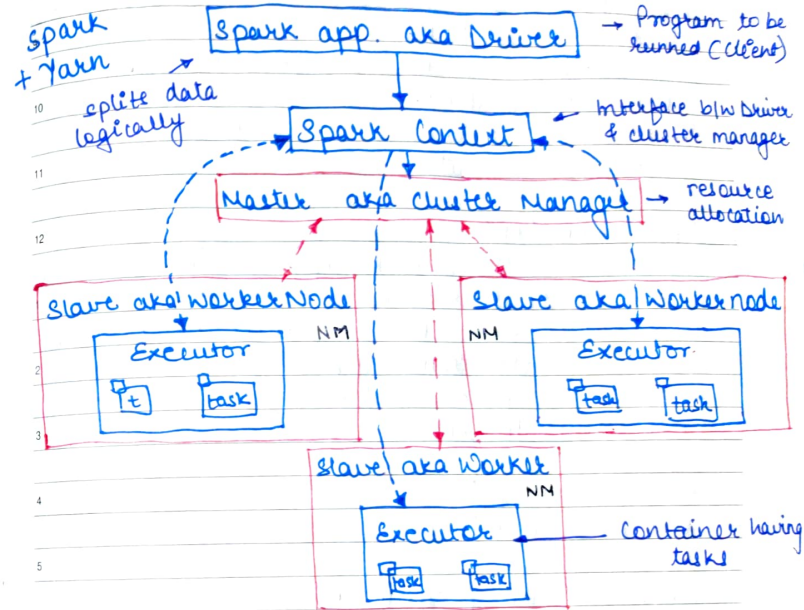 Spark
+ Yarn
Spark app. aka Driver
Program to be
runned (Client)
splits data
logically
10
Interface b/w Driver
& cluster manager
Spark Context
11
Master aka Cluster Manager
resource
allocation
12
Slave aka Worker Node
NM
Executor
t
task
Slave aka Worker node
NM
Executor
task
task
2
3
Slave aka Worker
NM
4
Executor
task
task
Container having
tasks
5